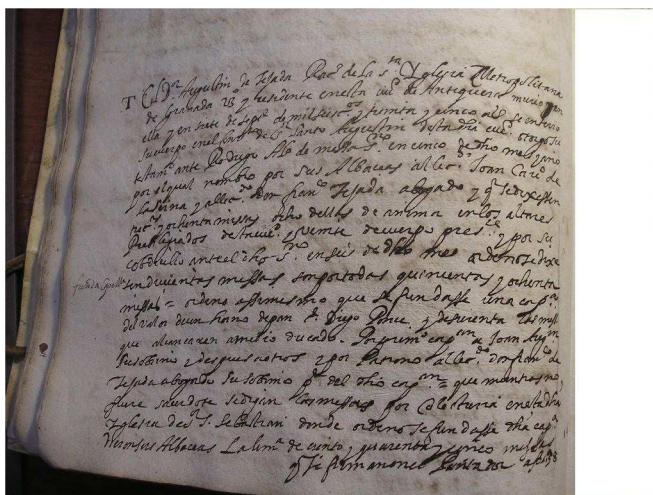 El Do.r Agustin de Tejada Rac.o de La S.ta Yglesia Metropolitana
de Granada V.o y residente en esta ciu.d de Antequera murio en
ella y en siete de Sep.e de mil seis.os y treinta y cinco años se enterro
su cuerpo en el con.to de S. Santo Augustin desta dha ciu.d otorgo su
testam.o ante Rodrigo Al.o de messa s.o en cinco de dho mes y año
por el qual nombro por sus Albaceas al lic.do Joan de
y al lic.do Don fran.co Tejada abogado y q se dixessen
y ochenta missas dellas de anima en los altares
Preuilegiados y veinte de cuerpo pres.te y por su
cobdicilio ante el dho s.o en seis de dho mes ordeno se dixe
sen duçientas missas son por todas quinientas y ochenta
missas = ordeno assimesmo que se fundasse una cap.a
del valor de un de pan de Diego Ponce y de renta las miss
que alcançaren a medio ducado. Por prim.o cap.an a Joan Aug.n
su sobrino y despues a otros y por Patrono al lic.do don fran.co de
Tejada abogado su sobrino p.e del dho cap.an = que mientras no
fuere sacerdote se digan las missas por la colecturia en esta dha
Iglesia de s.r S. Sebastian donde ordeno se fundasse dha cap.a
sus Albaceas La lim.a de ciento y quarenta y cinco missas
y lo firmaron